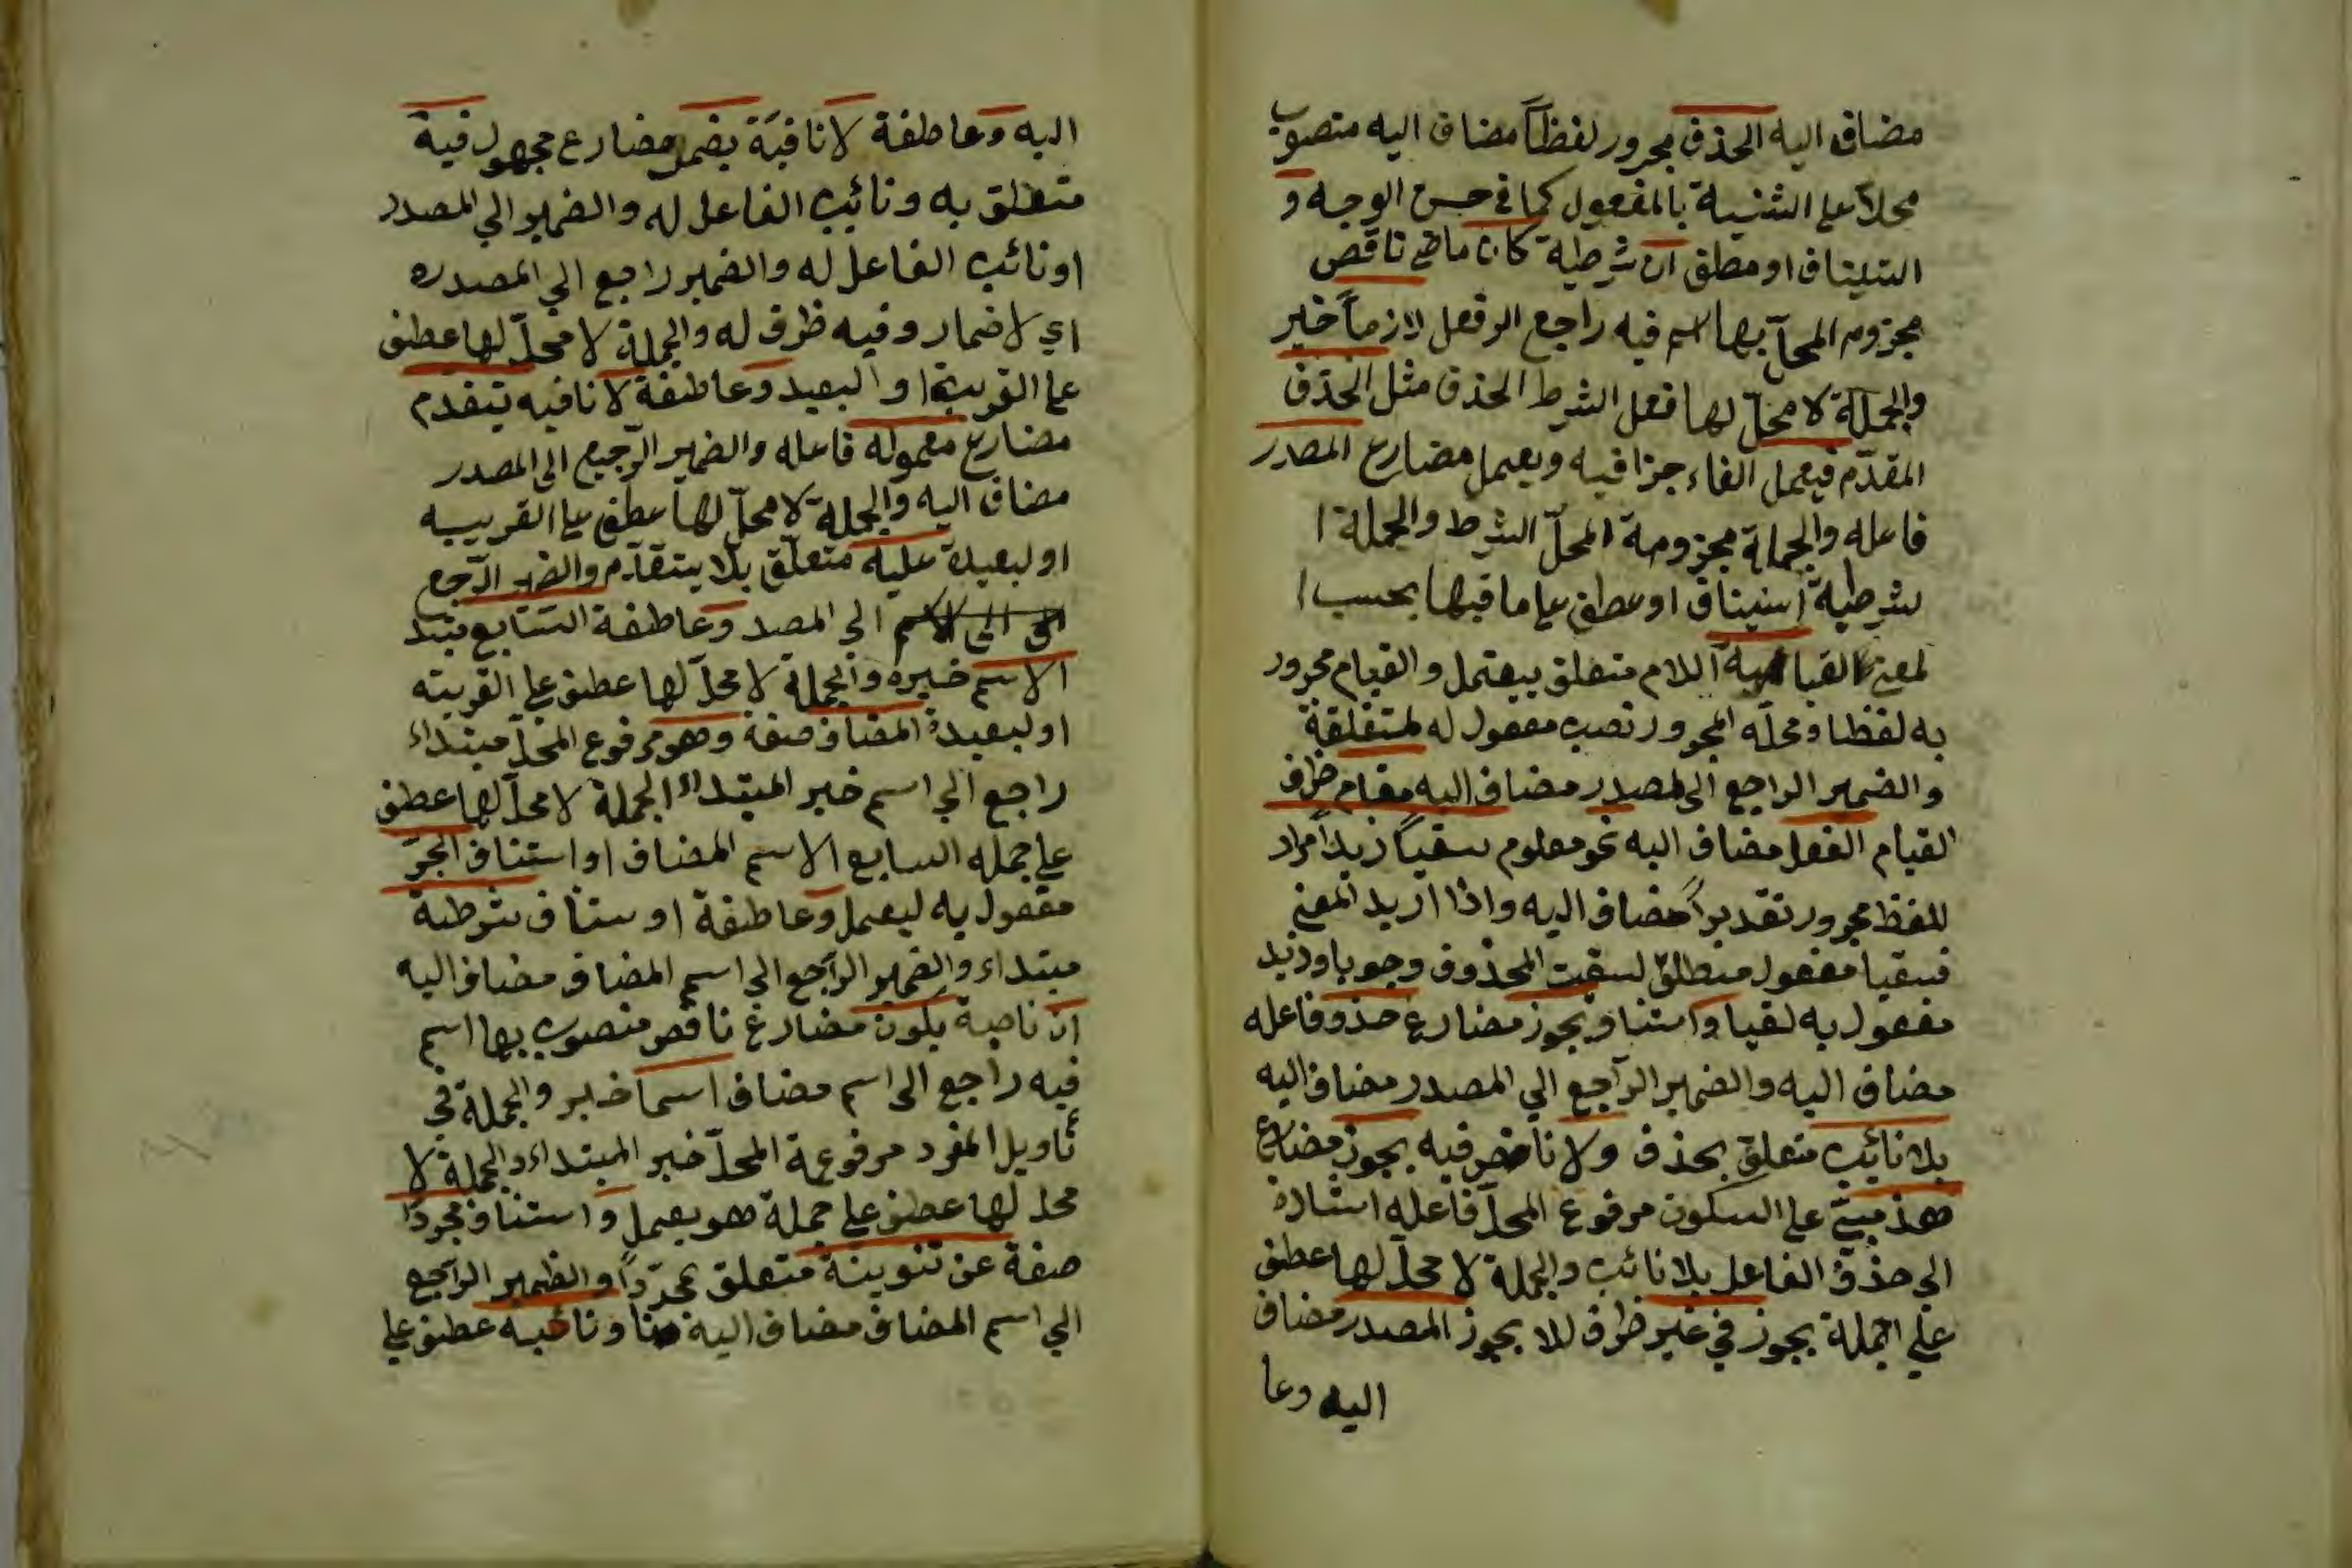 مضاف اليه الحذف مجرور لفظاً مضاف اليه منصوب
محلا على التشبيه بالمفعول كما في حسن الوجه و
استيناف او مطلق ان شرطية كان ماض ناقص
مجزوم المحل بها اسم فيه راجع الى فعل لازماً خبر
والجملة لا محلّ لها فعل الشرط الحذف مثل الحذف
المقدّم فيعمل الفاء جزافيه ويعمل مضارع المصدر
فاعله والجملة مجزومة المحلّ الشرط والجملة ا
لشرطية استيناف او عطف على ما قبلها بحسب ا
لمعنى اللام متعلق بيعتمل والقيام مجرور
به لفظا ومحله المجرور نصب مفعول له لمتعلقة
والضمير الراجع الى لمصدر مضاف اليه مقام ظرف
القيام الفعل مضاف اليه نحو معلوم سقياً زيداً مراد
للفظ مجرور تقديراً مضاف اليه واذا اريد المعنى
فسقيا مفعول مطلق لسقيت المحذوف وجوبا وزيد
مفعول به لقيا واستناف يجوز مضارع حذف فاعله
مضاف اليه والضمير الراجع الي المصدر مضاف اليه
بلا نائب متعلق بحذف ولا فيه يجوز مضارع
هذ مبنى على السكون مرفوع المحل فاعله اشارة
الي حذف الفاعل بلا نائب والجملة لا محلّ لها عطف
على الجملة يجوز في غير ظرف للا يجوز المصدر مضاف
اليه وعا
اليه وعاطفة لا نافية يضمر مضارع مجهول فيه
متعلق به ونائب الفاعل له والضمير الي المصدر
او نائب الفاعل له والضمير راجع الي المصدره
اي لاضمار وفيه ظرف له والجملة لا محلّ لها عطف
على القريبة او البعيد وعاطفة لا نافيه يتقدم
مضارع معموله فاعله والضمير الرّجيع الى المصدر
مضاف اليه والجملة لا محلّ لها عطف على القريبه
او لبعيدة عليه متعلق بلا يتقدّم والضمير الرّجع
الي المصد وعاطفة السّابع مبتد
الاسم خبره والجملة لا محلّ لها عطف على القريبته
او لبعيدة المضاف صفة وهو مرفوع المحلّ مبتداء
راجع الي اسم خبر المبتداء الجملة لا محلّ لها عطف
على جمله السابع الاسم المضاف او استناف الجرّ
مفعول به ليعمل وعاطفة او ستناف شرطية
مبتداء والضمير الراجع الي اسم المضاف مضاف اليه
ان ناصبة يكون مضارع ناقص منصوب بها اسم
فيه راجع الى اسم مضاف اسما خبر والجملة في
تأويل المفرد مرفوعة المحلّ خبر المبتداء والجملة لا
محل لها عطف على جملة هو يعمل واستناف مجرداً
صفة عن تنوينة متعلق بمجرّداً والظمير الراجع
الي اسم المضاف مضاف اليه ونائبه عطف على